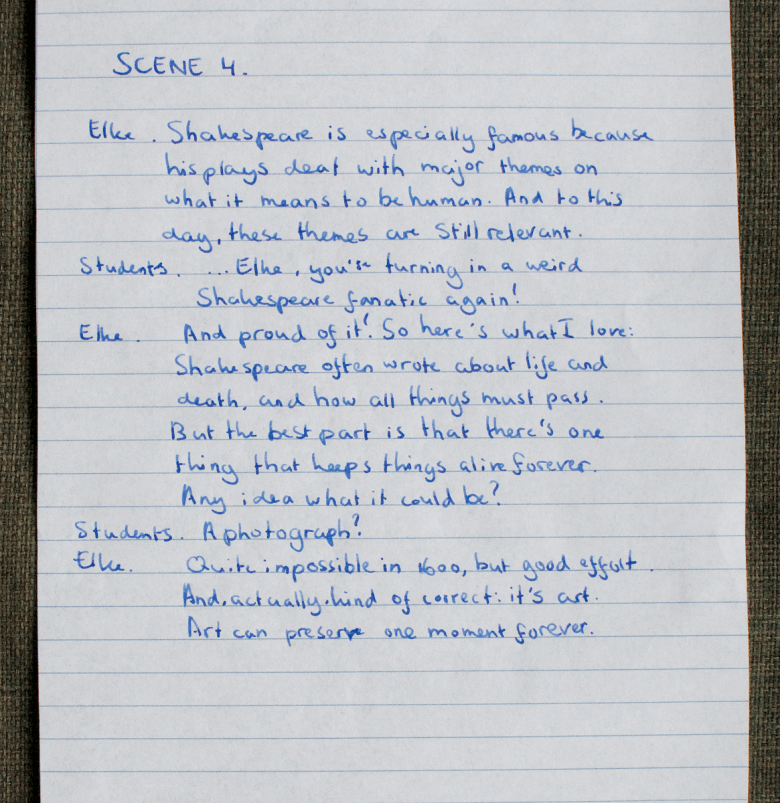 SCENE 4.
Elke. Shakespeare is especially famous because
his plays deal with major themes on
what it means to be human. And to this
day, these themes are still relevant.
Students. ... Elke, you're turning in a weird
Shakespeare fanatic again!
Elke. And proud of it! So here's what I love:
Shakespeare often wrote about life and
death, and how all things must pass.
But the best part is that there's one
thing that keeps things alive forever.
Any idea what it could be?
Students. A photograph?
Elke. Quite impossible in 1600, but good effort.
And, actually, kind of correct: it's art.
Art can preserve one moment forever.